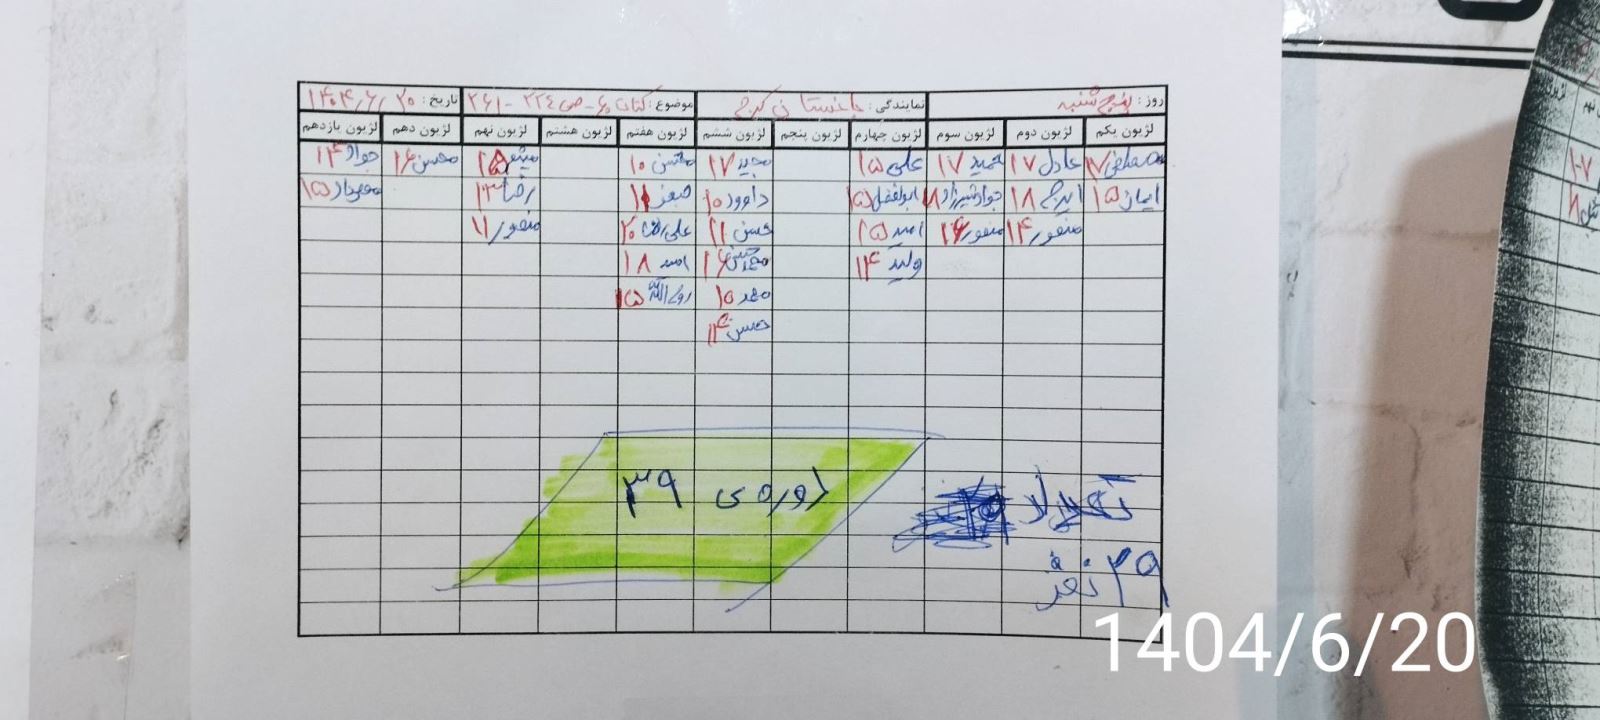 روز: پنج شنبه نمایندگی: باغستان کرج موضوع: کتاب ۶۰ - ص ۲۳۴ - ۲۶۱ تاریخ: ۱۴۰۴/۶/۲۰
لژیون یکم لژیون دوم لژیون سوم لژیون چهارم لژیون پنجم لژیون ششم لژیون هفتم لژیون هشتم لژیون نهم لژیون دهم لژیون یازدهم
مصطفی ۱۷ عادل ۱۷ حمید ۱۷ علی ۱۵ مجید ۱۷ محسن ۱۰ میثم ۱۵ محسن ۱۶ جواد ۱۴
ایمان ۱۵ ایرج ۱۸ جواد شیرزاد ۱۸ ابوالفضل ۱۵ داوود ۱۰ صفر ۱۱ رضا ۱۳ مهرداد ۱۵
منصور ۱۴ منصور ۱۶ امید ۱۵ حسن علی ۲۰ منصور ۱۱
ولید ۱۴ امید ۱۸
۱۰ روح الله ۱۵
حسن ۱۴
دوره ی ۳۹
تعداد
۲۹ نفر
1404/6/20